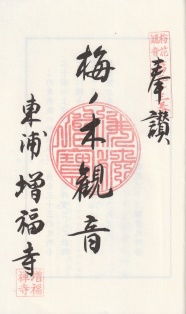 奉讃
梅ノ木観音
東浦 増福寺
増福
禅寺